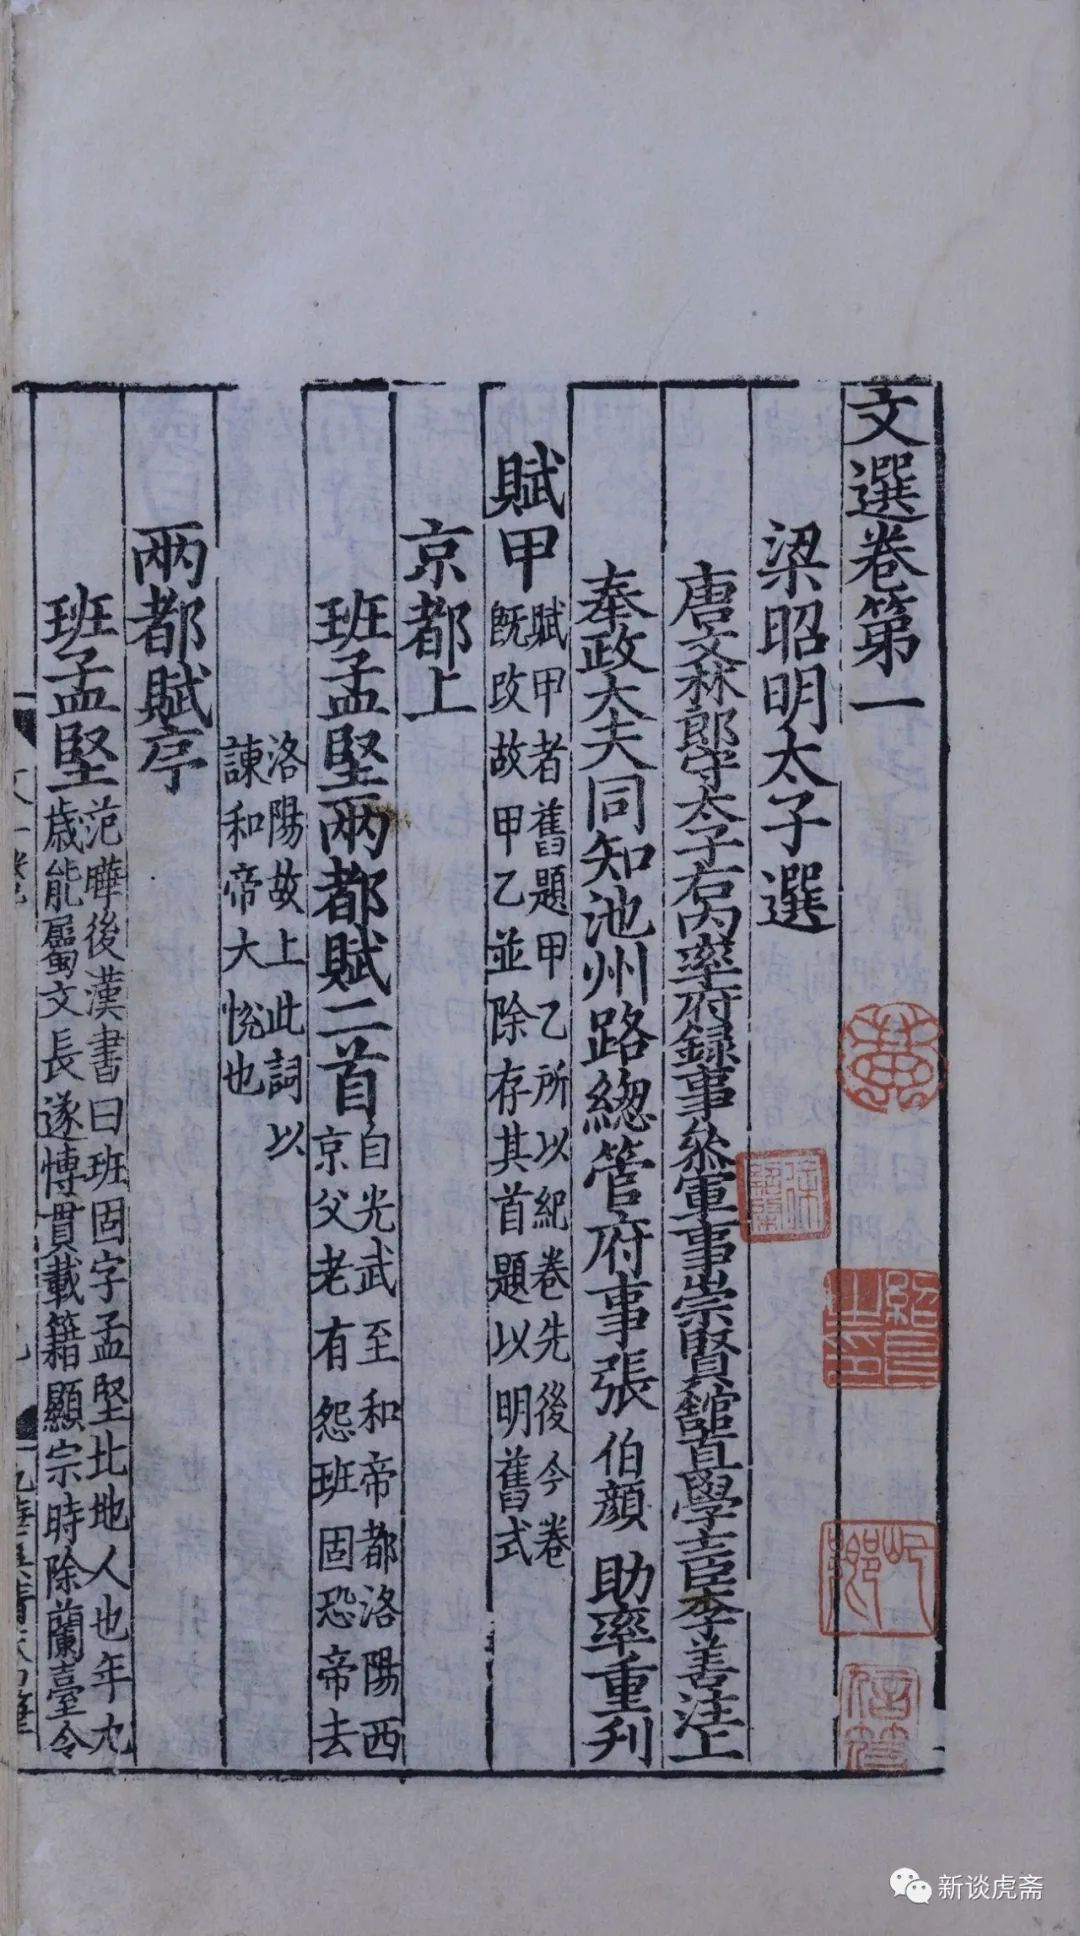 文選卷第一
梁昭明太子選
唐文林郎守太子右内率府録事叅軍事崇賢館直學士臣李善注上
奉政太夫同知池州路緫管府事張伯顔助率重刋
賦甲
賦甲者舊題甲乙所以紀卷先後今卷
既改故甲乙並除存其首題以明舊式
京都上
班孟堅兩都賦二首
自光武至和帝都洛陽西
京父老有怨班固恐帝去
洛陽故上此詞以
諫和帝大悅也
兩都賦序
班孟堅
范曄後漢書曰班固字孟堅北地人也年九
歲能屬文長遂博貫載籍顯宗時除蘭臺令
新谈虎斋